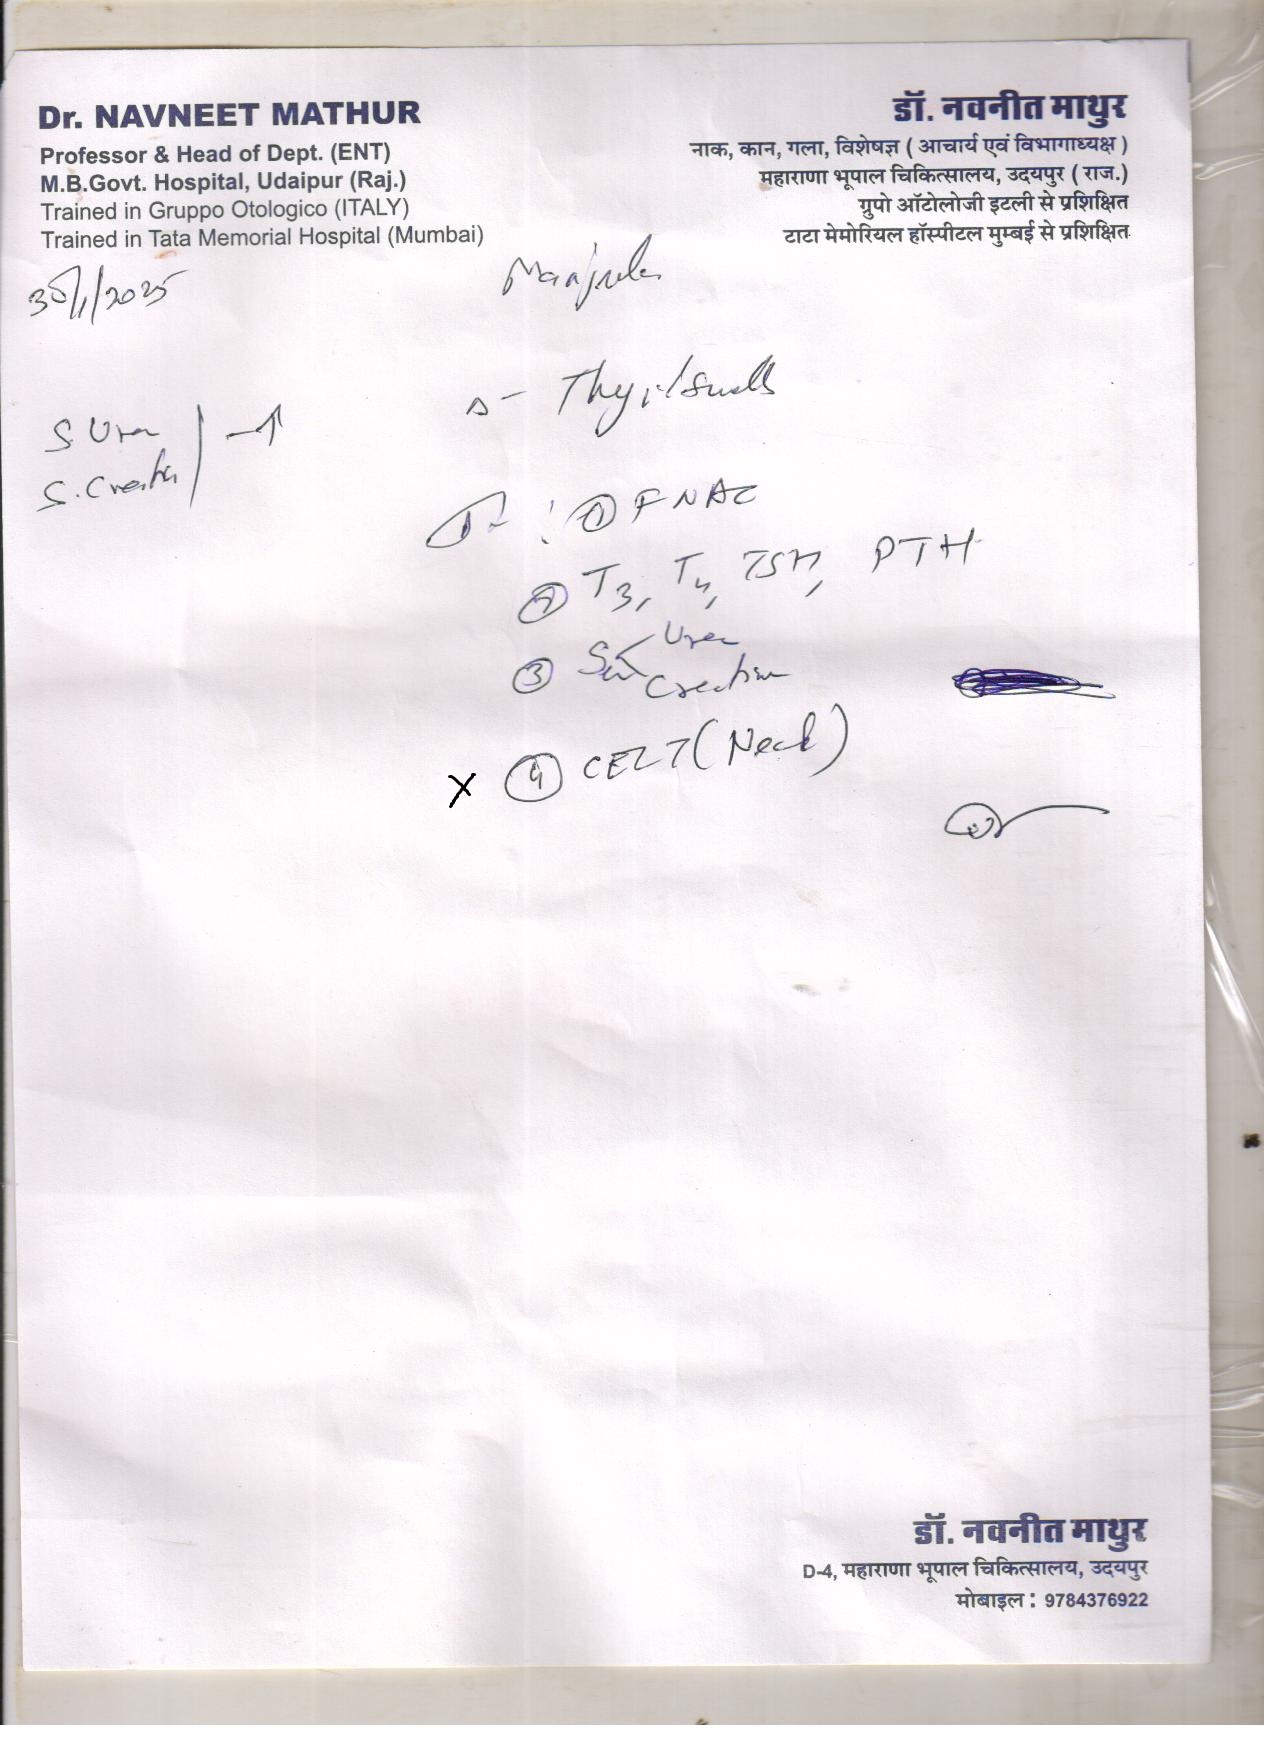 Dr. NAVNEET MATHUR
Professor & Head of Dept. (ENT)
M.B.Govt. Hospital, Udaipur (Raj.)
Trained in Gruppo Otologico (ITALY)
Trained in Tata Memorial Hospital (Mumbai)
डॉ. नवनीत माथुर
नाक, कान, गला, विशेषज्ञ ( आचार्य एवं विभागाध्यक्ष )
महाराणा भूपाल चिकित्सालय, उदयपुर ( राज.)
ग्रुपो ऑटोलोजी इटली से प्रशिक्षित
टाटा मेमोरियल हॉस्पीटल मुम्बई से प्रशिक्षित
/1/2025
S. Urea
S.
① FNAC
② T3, T4, TSH, PTH
③ Urea
④ (Neck)
X
डॉ. नवनीत माथुर
D-4, महाराणा भूपाल चिकित्सालय, उदयपुर
मोबाइल : 9784376922